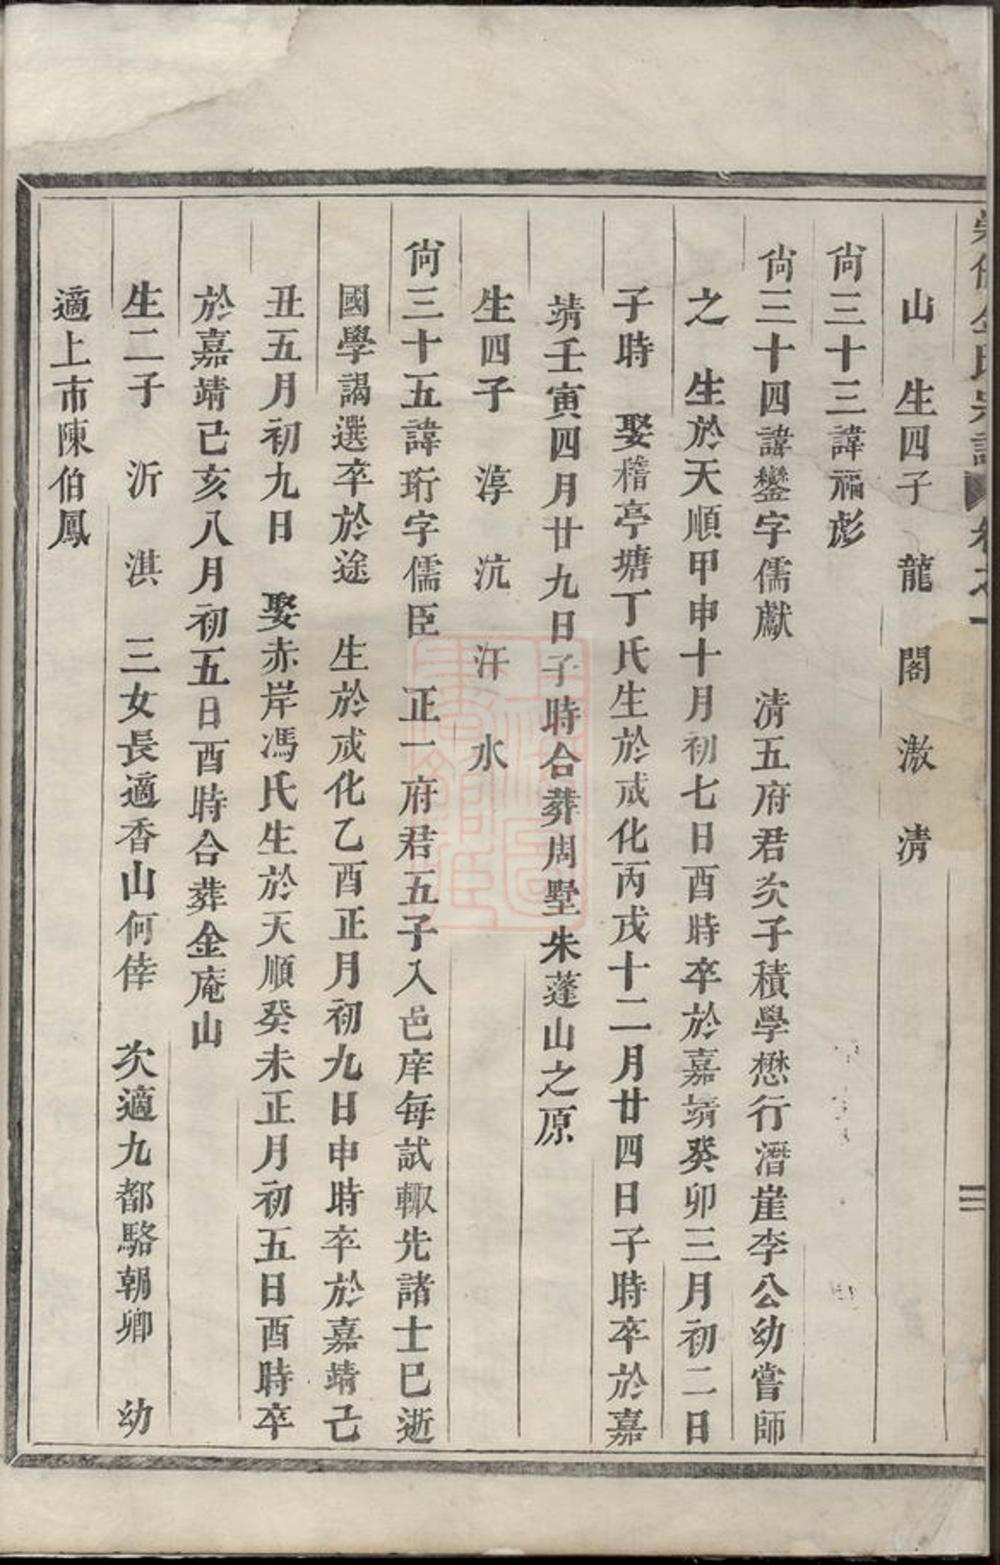 山　生四子　龍　閣　激　清
尙三十三諱福彪
尙三十四諱鑾字儒獻　清五府君次子積學懋行潛崖李公幼嘗師
之　生於天順甲申十月初七日酉時卒於嘉靖癸卯三月初二日
子時　娶稽亭塘丁氏生於成化丙戌十二月廿四日子時卒於嘉
靖壬寅四月廿九日子時合葬周墅朱蓬山之原
生四子　淳　沆　汗　水
尙三十五諱珩字儒臣　正一府君五子入邑庠每試輙先諸士巳逝
國學謁選卒於途　生於成化乙酉正月初九日申時卒於嘉靖己
丑五月初九日　娶赤岸馮氏生於天順癸未正月初五日酉時卒
於嘉靖己亥八月初五日酉時合葬金庵山
生二子　沂　淇　三女長適香山何倖　次適九都駱朝卿　幼
適上市陳伯鳳